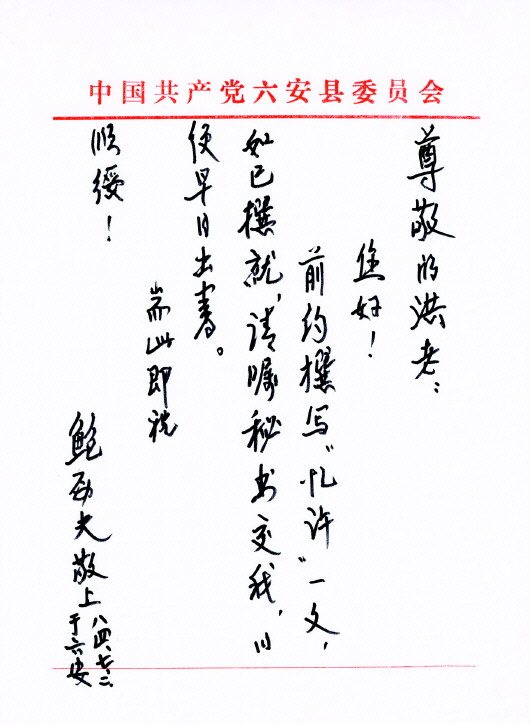 中国共产党六安县委员会
尊敬的洪老：
您好！
前约撰写“忆许”一文，
如已撰就，请嘱秘书交我，以
便早日出书。
耑此即祝
顺绥！
鲍劲夫敬上
八四、七、二
于六安